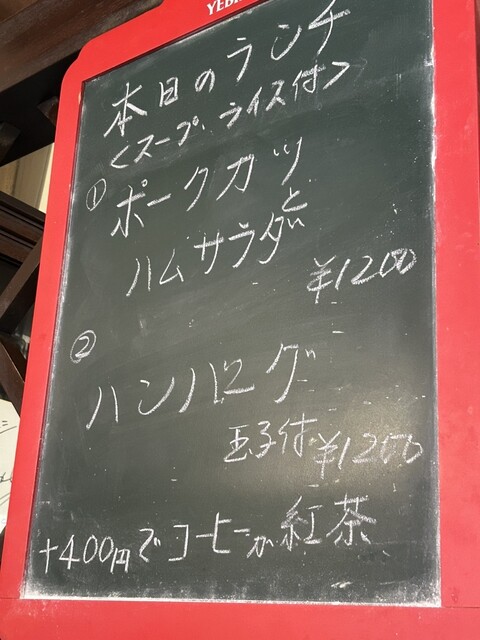 本日のランチ
<スープ、ライス付>
① ポークカツと
ハムサラダ
¥1200
②
ハンバーグ
玉子付 ¥1200
+400円でコーヒーか紅茶